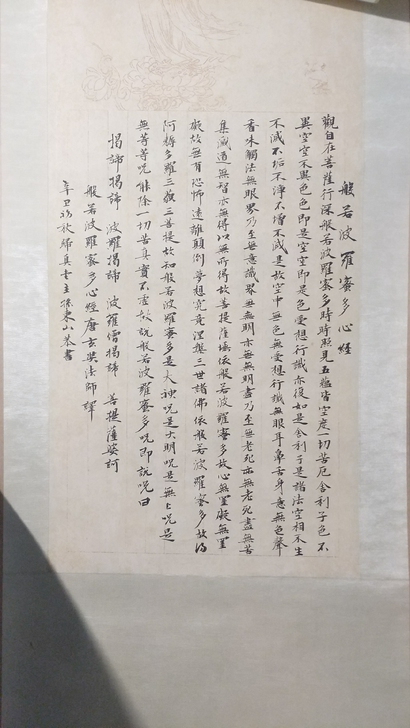 般若波羅蜜多心經
觀自在菩薩行深般若波羅蜜多時照見五蘊皆空度一切苦厄舍利子色不
異空空不異色色即是空空即是色受想行識亦復如是舍利子是諸法空相不生
不滅不垢不淨不增不減是故空中無色無受想行識無眼耳鼻舌身意無色聲
香味觸法無眼界乃至無意識界無無明亦無無明盡乃至無老死亦無老死盡無苦
集滅道無智亦無得以無所得故菩提薩埵依般若波羅蜜多故心無罣礙無罣
礙故無有恐怖遠離顛倒夢想究竟涅槃三世諸佛依般若波羅蜜多故得
阿耨多羅三藐三菩提故知般若波羅蜜多是大神咒是大明咒是無上咒是
無等等咒能除一切苦真實不虛故說般若波羅蜜多咒即說咒曰
揭諦揭諦 波羅揭諦 波羅僧揭諦 菩提薩婆訶
般若波羅蜜多心經 唐玄奘法師譯
辛丑初秋歸真書主孫東山恭書